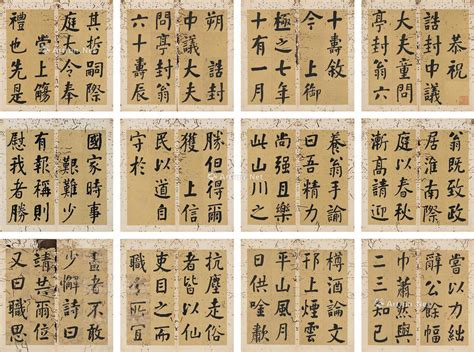 恭祝
誥封中議
大夫童問
亭封翁六
十壽敘
今上御
極之七年
十有一月
朔 誥封
中議大夫
問亭封翁
六十壽辰
其哲嗣際
庭令奉
堂上觴
禮也先是
翁既致政
居淮南際
庭以春秋
養翁手諭
曰吾精力
尚强且樂
此山川之
勝但得爾
獲上信
民以道自
守於
國家時事
艱難少
有報稱則
慰我者勝
當以力絀
辭公餘幅
巾蕭然與
二三知己
樽酒論文
邗上煙雲
平山風月
日供唫歗
抗塵走俗
者皆以仙
吏目之而
職所宜
盡者不敢
少懈詩曰
靖共爾位
又曰職思